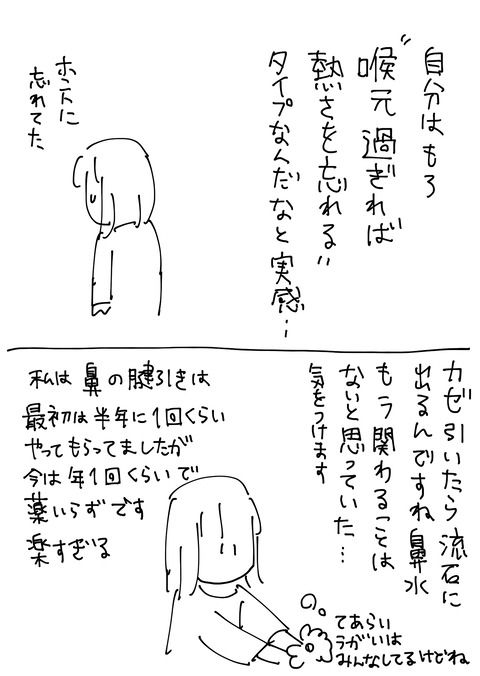 自分はもろ
〝喉元過ぎれば
熱さを忘れる〟
タイプなんだなと実感…
ホントに
忘れてた
カゼ引いたら流石に
出るんですね鼻水
もう関わることは
ないと思っていた…
気をつけます
私は鼻の腱引きは
最初は半年に1回くらい
やってもらってましたが
今は年1回くらいで
薬いらずです
楽すぎる
てあらい
うがいは
みんなしてるけどね